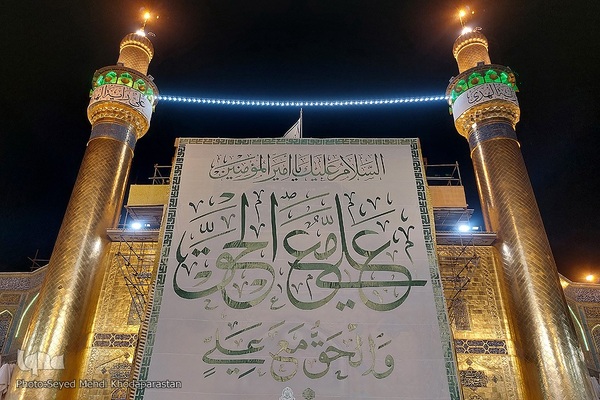 السلام عليك يا امير المؤمنين
علي مع الحق
والحق مع علي
iqna
Photo:Seyed Mehdi Khodaparastan